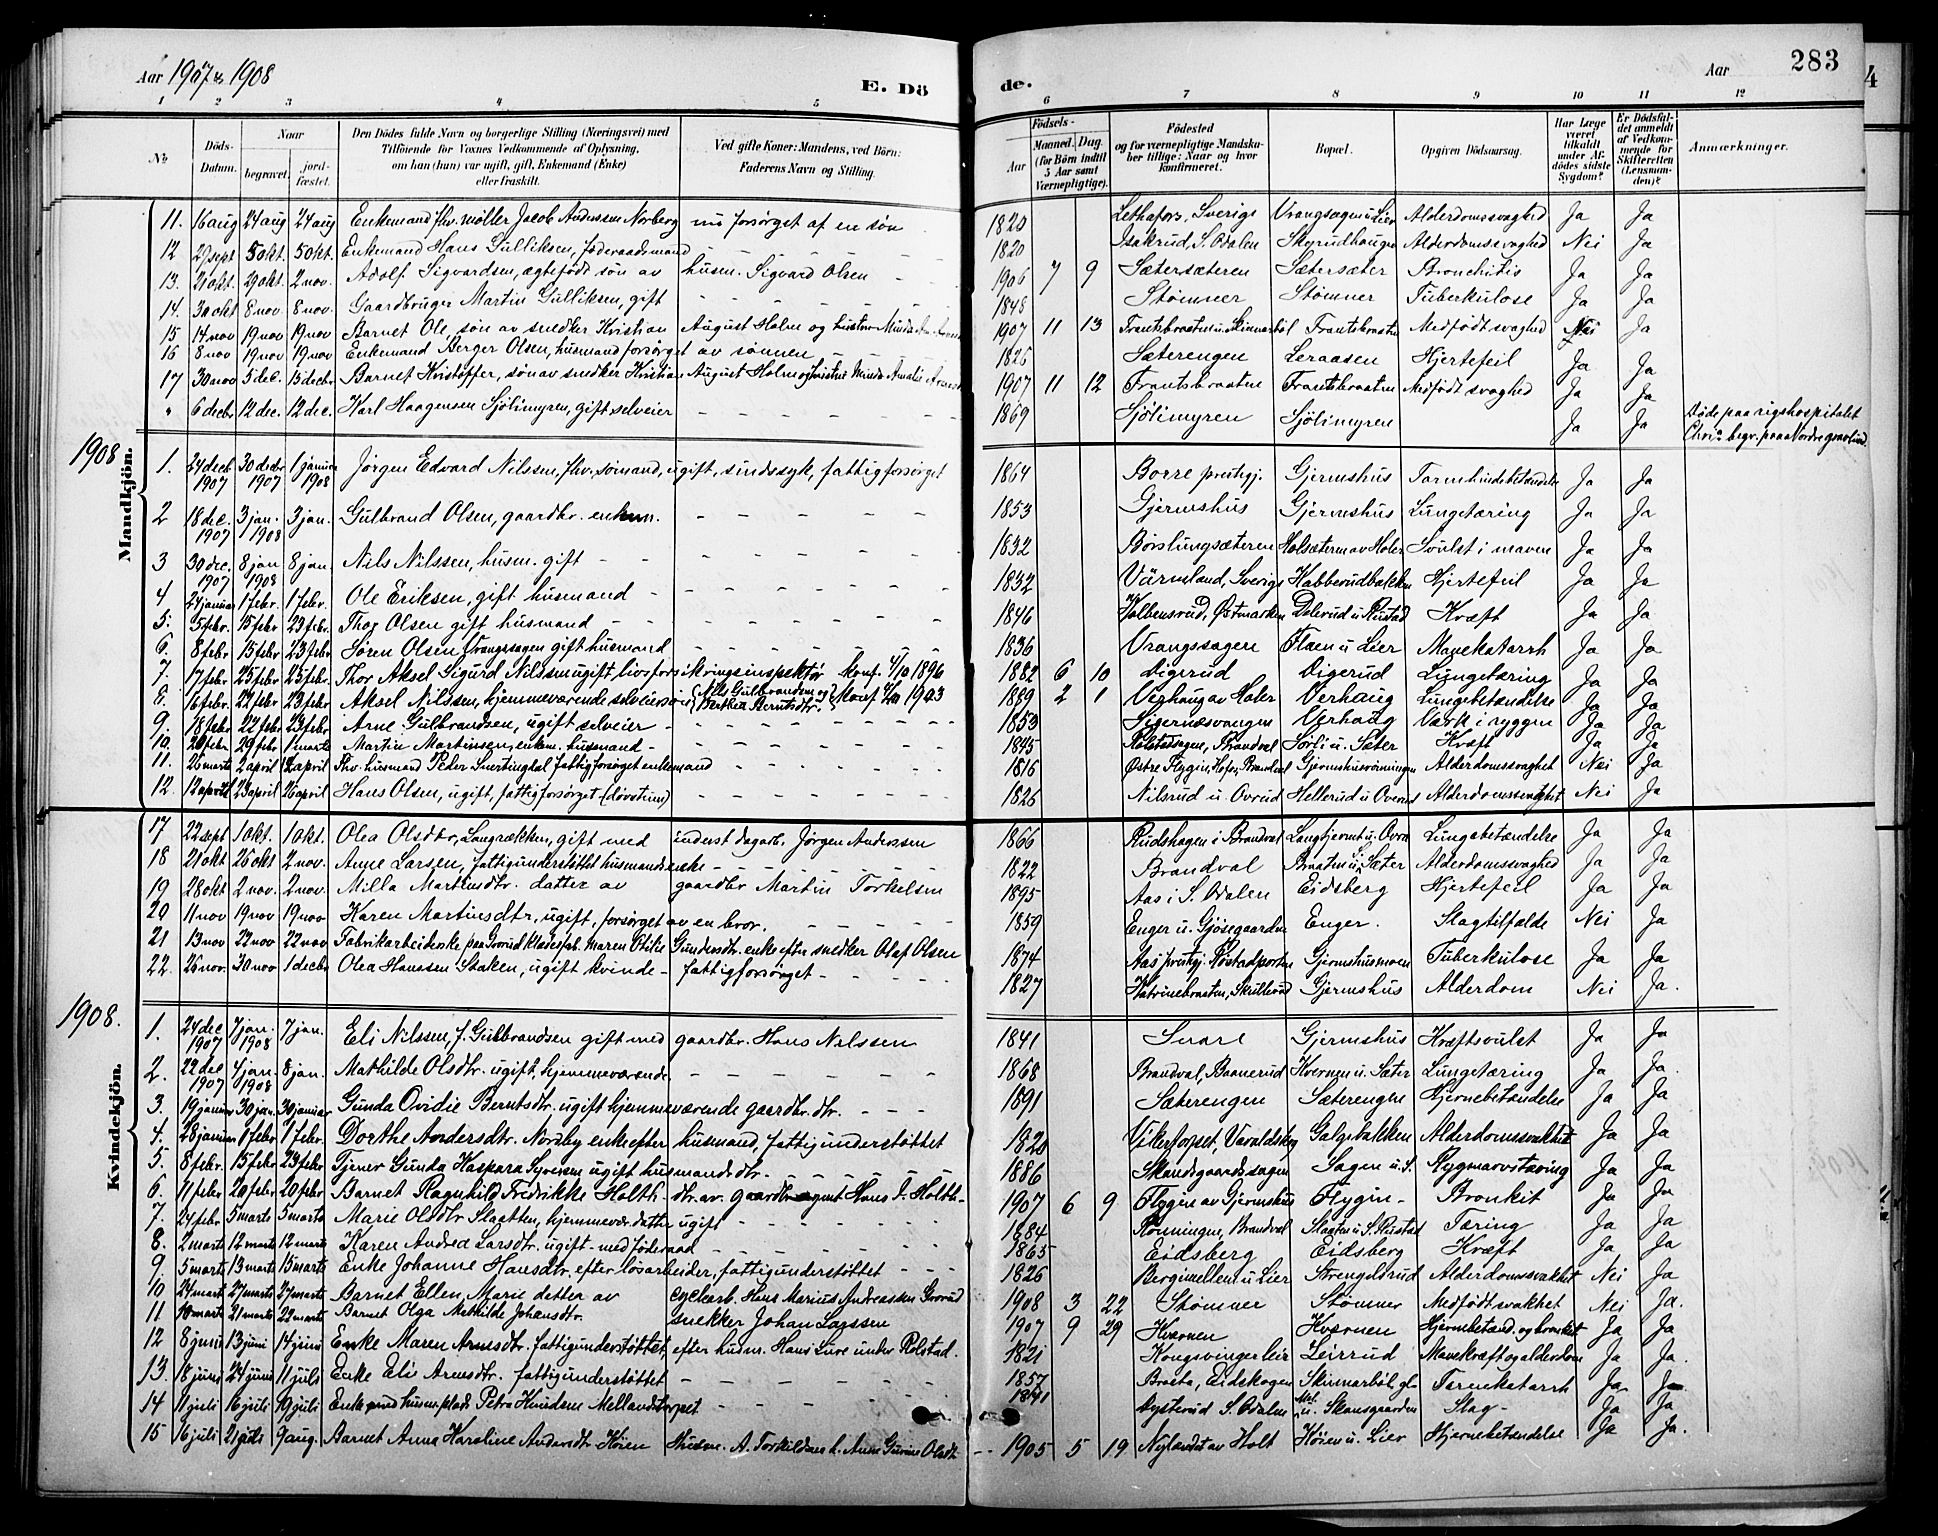 Aar 1907 & 1908
E. Dö
de.
Aar
283
1 2 3 4 5 6 7 8 9 10 11 12
No
Döds-Datum.
Naar
begravet.
jord-fæstet.
Den Dödes fulde Navn og borgerlige Stilling (Næringsvei) med Tilföiende for Voxnes Vedkommende af Oplysning, om han (hun) var ugift, gift, Enkemand (Enke) eller fraskilt.
Ved gifte Koner: Mandens, ved Börn: Faderens Navn og Stilling.
Födsels-
Aar
Maaned. Dag.
(for Börn indtil 5 Aar samt Værnepligtige).
Födested og for værnepligtige Mandskaber tillige: Naar og hvor konfirmeret.
Bopæl.
Opgiven Dödsaarsag.
Har Læge været tilkaldt under Afdödes sidste Sygdom?
Er Dödsfaldet anmeldt af Vedkommende for Skifteretten (Lensmanden)?
Anmærkninger.
Mandkjön.
11. 16 aug 24 aug 24 aug Enkemand fhv. møller Jacob Anderssen Norberg nu forsørget af en søn 1820 Lethafors, Sverige Vrangsagen u. Lier Alderdomssvaghed Ja Ja
12 27 sept 5 okt. 5 okt. Enkemand Hans Gulliksen, føderaadsmand 1820 Isakrud, S. Odalen Skyrudhaugen Alderdomssvaghed Nei Ja
13. 21 okt. 29 okt. 2 nov. Adolf Sigvardsen, ægtefødt søn av husm. Sigvard Olsen 1906 7 9 Sætersæteren Sætersæter Bronchitis Ja Ja
14. 30 okt 8 nov. 8 nov. Gaardbruger Martin Gulliksen, gift 1848 Stømner Stømner Tuberkulose Ja Ja
15 14 nov 19 nov 19 nov Barnet Ole, søn av snedker Kristian August Holm og hustru Minda 1907 11 13 Frantsbraaten u. Skinnarbøl Frantsbraaten Medfødt svaghed Nei Ja
16 8 nov 19 nov 19 nov Enkemand Berger Olsen, husmand forsørget av sønnen 1825 Sæterengen Leraasen Hjertefeil Ja Ja
17 30 nov 5 dec. 15 decbr Barnet Kristoffer, søn av snedker Kristian August Holm og hustru Minda Amalie 1907 11 12 Frantsbraaten Frantsbraaten Medfødt svaghed Ja Ja
" 6 decbr 12 dec. 12 dec. Karl Haagensen Sjölimyren, gift selveier 1869 Sjölimyren Sjölimyren Ja Ja Døde paa rigshospitalet Chria. begr. paa Nordre gravlund.
1908
1. 24 decb 1907 30 decbr 1907 1 januar 1908 Jörgen Edvard Nilssen, fhv. sömand, ugift, sindssyk, fattigforsørget 1864 Borre prestegj. Gjermshus Tarmhindebetændelse Ja Ja
2 18 dec. 1907 3 jan. 1908 3 jan. Gulbrand Olsen, gaardbr. enkem. 1853 Gjermshus Gjermshus Lungetæring Ja Ja
3 30 dec. 1907 8 jan 1908 8 jan. Nils Nilssen, husm. gift 1832 Børslungsæteren Holsæteren av Holer Svulst i maven Ja Ja
4 24 januar 1 febr. 1 febr. Ole Eriksen, gift husmand 1832 Värmland, Sverige Habberudbakken Hjertefeil Ja Ja
5. 5 febr. 15 febr 23 febr. Thor Olsen gift husmand 1846 Kolbensrud, Østmarken Dølerud u. Rustad Kræft Ja Ja
6. 8 febr 15 febr 23 febr Søren Olsen Vrangssagen gift husmand 1836 Vrangssagen Flaen u Lier Mavekatarrh Ja Ja
7. 17 febr 25 febr 25 febr. Thor Aksel Sigurd Nilssen ugift, livsforsikringsinspektør Konf. 4/10 1896 1882 6 10 Digerud Digerud Lungetæring Ja Ja
8. 16 febr. 22 febr 23 febr Aksel Nilssen, hjemmeværende selveiersøn (Nils Gulbrandsen og Berthea Berntsdtr.) Konf 4/10 1903 1889 2 1 Verhaug av Holer Verhaug Lungebetændelse Ja Ja
9. 18 febr 22 febr 23 febr Arne Gulbrandsen, ugift selveier 1853 Sigernæsvangen Verhaug Værk i ryggen Ja Ja
10. 20 febr. 29 febr 1 marts Martin Martinssen, enkem. husmand 1845 Rolstadsagen, Brandvol Sørli u. Sæter Kræft Ja Ja
11. 26 marts 2 april 12 april Fhv. husmand Peder Snertingdal fattigforsørget enkemand 1816 Østre Flygin, Hofer, Brandval Gjermshusrönningen Alderdomssvaghet Nei Ja
12. 12 april 23 april 26 april Hans Olsen, ugift, fattigforsørget (døvstum) 1826 Nilsrud u. Ovrud Hellerud u Overud Alderdomssvaghet Nei Ja
Kvindekjön.
17 22 sept 1 okt. 1 okt. Olea Olsdtr, Langrækken, gift med inderst dagarb. Jörgen Anderssen 1866 Rudshagen i Brandval Langtjernet u. Ovrn Lungebetændelse Ja Ja
18 21 okt 26 okt 2 nov. Anne Larsen, fattigunderstöttet husmandsenke 1822 Brandval Braaten u. Sæter Alderdomssvaghed Ja Ja
19 28 okt 2 nov. 2 nov. Milla Martinsdtr. datter av gaardbr Martin Torkelsen 1895 Aas i S. Odalen Eidsberg Hjertefeil Ja Ja
20 11 nov 19 nov 19 nov Karen Martinsdtr, ugift, forsørget av en bror. 1859 Enger u. Gjøsegaarden Enger. Slagtilfælde Nei Ja
21 13 nov 22 nov 22 nov Fabrikarbeiderske paa Grorud klædesfab. Maren Otilie Gundersdtr. enke efter snedker Olaf Olsen 1874 Aas prestegj. Røstadporten Gjermshusmoen Tuberkulose Ja Ja
22. 26 nov. 30 nov 1 decbr Olea Hanssen Staken, ugift kvinde fattigforsørget 1827 Katrinebraaten, Skullerud Gjermshus Alderdom Nei Ja.
1908.
1. 24 dec 1907 7 jan. 1908 7 jan. Eli Nilssen, f. Gulbrandsen gift med gaardbr. Hans Nilssen 1841 Snare Gjermshus Kræftsvulst Ja Ja
2. 22 dec 1907 4 jan. 1908 8 jan. Mathilde Olsdtr. ugift, hjemmeværende 1868 Brandval, Baanerud Kvernen u. Sæter Lungetæring Ja Ja
3. 19 januar 30 jan. 30 januar Gunda Ovidie Berntsdtr. ugift hjemmeværende gaardbr. dtr. 1891 Sæterengen Sæterengen Hjernebetændelse Ja Ja
4. 28 januar 1 febr 1 febr. Dorthe Andersdtr. Norsby enke efter husmand, fattigunderstöttet 1820 Vikertopset, Varaldskog Galgebakken Alderdomssvakhet Ja Ja
5. 8 febr. 15 febr 23 febr Tjener Gunda Kaspara Syversen ugift husmandsdtr. 1886 Skandsgaardssagen Sagen u. S. Rygmarvstæring Ja Ja
6. 11 febr 20 febr 20 febr Barnet Ragnhild Fredrikke Holth dtr. av gaardbr. Hans I. Holth 1907 6 9 Flygin av Gjermshus Flygin Bronkit Ja Ja
7. 24 febr 5 marts 5 marts Marie Olsdtr Slaatten, hjemmevær. datter ugift 1884 Rönningen, Brandval Slaaten u S. Rustad Tæring Ja Ja
8. 2 marts 12 marts 12 marts Karen Andrea Larsdtr. ugift med føderaad 1865 Eidsberg Eidsberg Kræft Ja Ja
9. 5 marts 13 marts 15 marts Enke Johanne Hansdtr. efter løsarbeider, fattigunderstöttet 1826 Bergimellem u Lier Strengelsrud Alderdomssvakhet Nei Ja
10 24 mart 27 marts 27 marts Barnet Ellen, Marie datter av Hans Marius Andreassen 1908 3 22 Stømner Stømner Medfødt svakhet Nei Ja.
11 10 marts 21 marts 22 marts Barnet Olga Mathilde Johansdtr. snekker Johan Larssen 1907 9 29 Kværnen Kværnen Hjernebetænd. og bronkit Ja Ja
12 8 juni 13 juni 14 juni Enke Maren Arnesdtr. fattigunderstöttet, efter husm. Hans Lure under Rolstad. 1821 Kongsvinger leir Leirrud Mavekræft og alderdom Ja Ja.
13. 18 juni 24 juni 11 juli Enke Eli Arnesdtr. fattigunderstöttet 1857 Braata, Eidskogen Skinnarböl, gl. Tarmkatarrh Ja Ja
14 11 juli 16 juli 19 juli Enke Petra Knudsen Mellandstorpet 1841 Oysterud S. Odalen u. Skansgaarden Slag Ja Ja
15 16 juli 21 juli 9 aug. Barnet Anna Karoline Andersdtr Høien Husm. A. Torkildsen h. Anne Gurine Olsdtr 1905 5 19 Nylandet av Holt Høien u. Lier Hjernebetændelse Ja Ja.